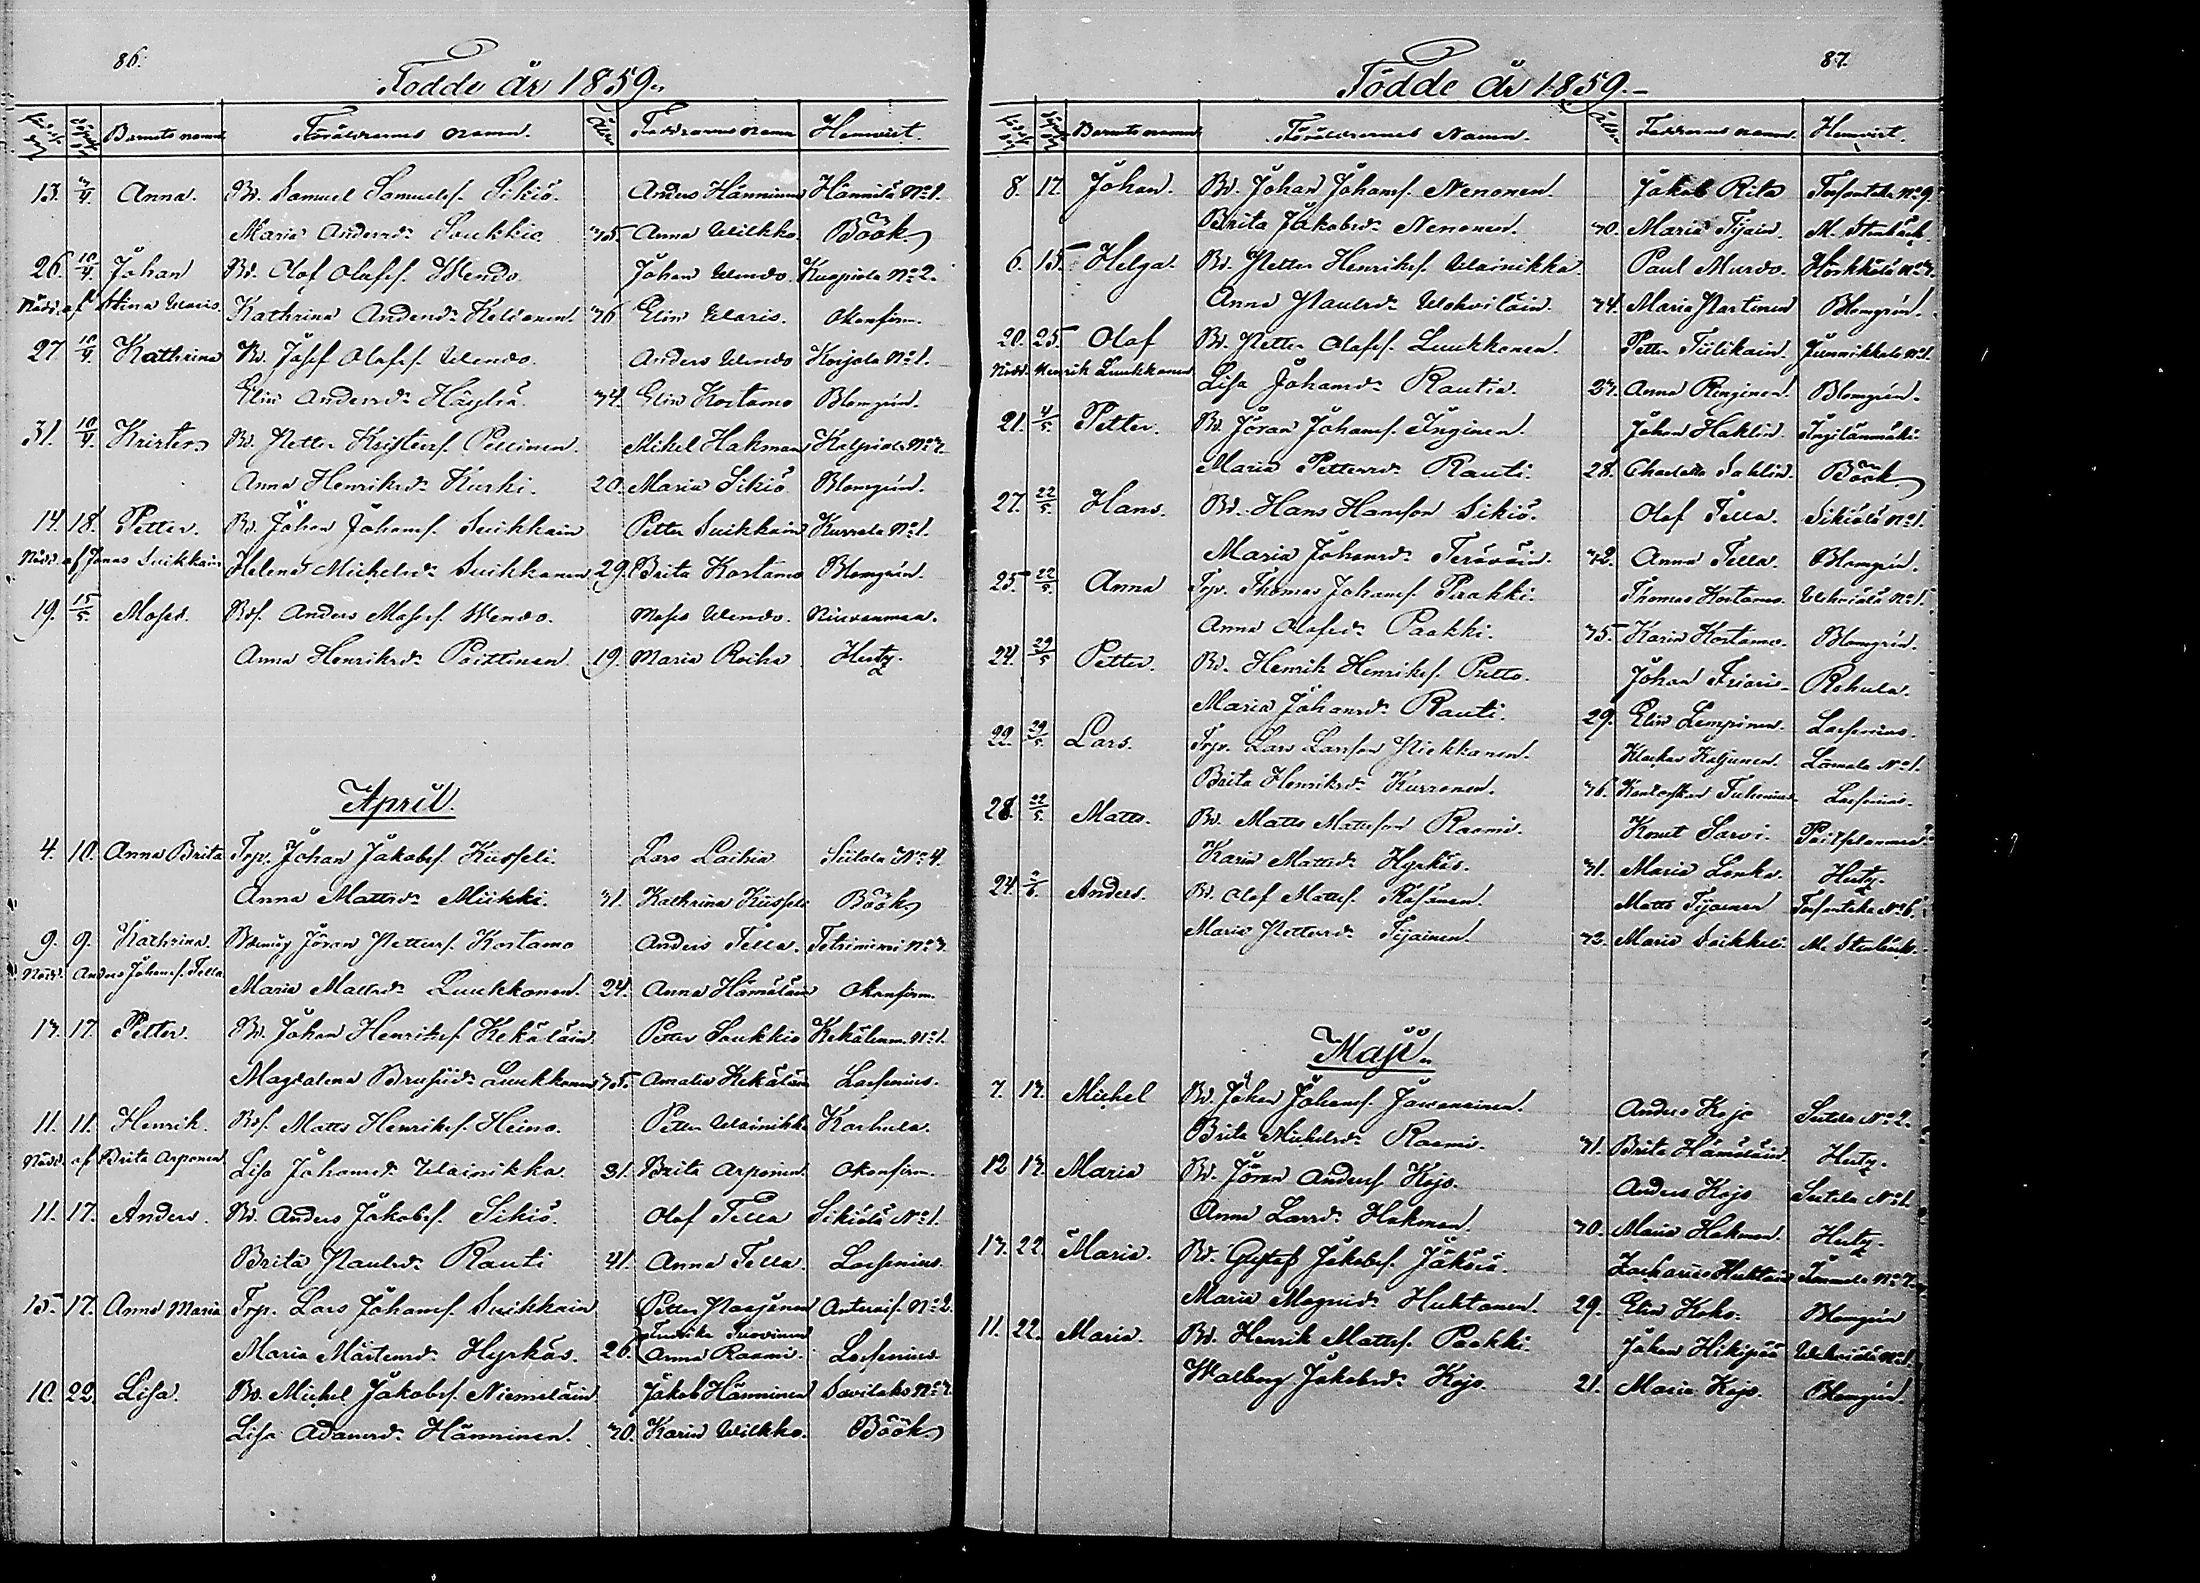 86.
Födde år 1859.
Barnets namn Föräldrarnes namn. Ålder Faddrarnes namn Hemvist.
13. 3/4 Anna. Bd. Samuel Samuelsf. Sikiö. Anders Hänninen Hännilä No 1.
Maria Andersdr Soukkio 35. Anna Wilkko. Böök
26. 10/4 Johan Bd. Olof Olofsf. Wendo. Johan Wendo. Kuopiola No 2.
Nödd. af Stina Waris. Kathrina Andersdr Keliönen. 36 Elin Waris. Okonfirm.
27 10/4 Kathrina Bd. Josef Olofsf. Wendo. Anders Wendo Korjola No 1.
Elin Andersdr Häyhiä. 34. Elin Kostamo Blomgrén.
31. 10/4 Krister Bd. Petter Kristersf. Pellinen. Mikel Hakman No 3.
Anna Henriksdr Kurki. 20. Maria Sikiö Blomgrén.
14. 18. Petter. Bd. Johan Johansf. Suikkain Petter Suikkain Kurrola No 1.
Nödd. af Jonas Suikkain Helena Mickelsdr Suikkanen 29. Brita Kostamo Blomgrén.
19. 15/5 Moses. Bdf. Anders Mosesf. Wendo. Moses Wendo.
Anna Henriksdr Poittinen 19. Maria Roiha Hertz.
April.
4. 10. Anna Brita Trp. Johan Jakobsf. Kusseli. Lars Laihia Siitola No 4.
Anna Mattsdr Miikki. 31. Kathrina Kusseli Böök
9. 9. Kathrina. Jöran Pettersf. Kostamo Anders Tella. Tetriniemi No 3.
Nödd. Anders Johansf. Tella Maria Mattsdr Luukkonen. 24. Anna Hämäläin Okonfirm.
13. 17 Petter. Bd. Johan Henriksf. Kekäläin Petter Soukkio No 1.
Magdalena Luukkonen 35. Amalia Kekäläin Lacsenius.
11. 11. Henrik. Bdf. Matts Henriksf. Heino. Petter Wainikka Karhula.
Nödd. af Brita Arponen Lisa Johansdr Wainikka. 31. Brita Arponen. Okonfirm.
11. 17. Anders. Bd. Anders Jakobsf. Sikiö. Olof Tella Sikiölä No 1.
Brita Paulsdr Rauti 41. Anna Tella. Lacsenius.
15. 17. Anna Maria Trp. Lars Johansf. Suikkain Petter Paajanen No 2.
Maria Mårtensdr Hyrkäs. 26. Anna Raami. Lacsenius
10. 22. Lisa. Bd. Michel Jakobsf. Niemeläin Jakob Hänninen No 3.
Lisa Adamsdr Hänninen. 30. Karin Wilkko. Böök
87.
Födde år 1859.
Barnets namn Föräldrarnes Namn. Ålder Faddrarnes namn. Hemvist.
8. 17. Johan. Bd. Johan Johansf. Nenonen. Jakob Rita No 9
Brita Jakobsdr Nenonen. 30. Maria Tijain. M. Stenbäck.
6. 15. Helga. Bd. Petter Henriksf. Wainikka. Paul Murdo.
Anna Paulsdr Wohviläin. 34. Maria Partinen Blomgrén.
20. 25. Olof Bd. Petter Olofsf. Luukkonen. Petter Tiilikain. Junnikkala No 1.
Nödd. Henrik Luukkonen Lisa Johansdr Rautia. 23. Anna Renginen. Blomgrén.
21. 4/5 Petter. Bd. Jöran Johansf. Inginen. Johan Haklin.
Maria Pettersdr Rauti. 28. Böök
27. 22/5 Hans. Bd. Hans Hansson Sikiö. Olof Tella. Sikiölä No 1.
Maria Johansdr Teräväin. 32. Anna Tella. Blomgrén.
25. 22/5 Anna Trp. Thomas Johansf. Paakki. Thomas Kostamo. No 1.
Anna Olofsdr Paakki. 35. Karin Kostamo. Blomgrén.
24. 29/5 Petter. Bd. Henrik Henriksf. Putto. Johan Friari. Rohula.
Maria Johansdr Rauti. 29. Elin Lempinen. Lacsenius.
22. 29/5 Lars. Trp. Lars Larsson Piekkanen. Kaljunen. No 1.
Brita Henriksdr Kurronen. 36. Lacsenius.
28. 22/5 Matts. Bd. Matts Mattsson Raami. Knut Sarvi.
Karin Mattsdr Hyrkäs. 31. Maria Lanka. Hertz.
24. Anders. Bd. Olof Mattsf. Räsänen. Matts Tijainen No 6.
Maria Pettersdr Tijainen. 32. Maria Seikkeli M. Stenbäck.
Maji.
7. 13. Michel Bd. Johan Johansf. Anders Kojo Siitola No 2.
Brita Michelsdr Raami. 31. Brita Hämäläin Hertz.
12 13. Maria Bd. Jöran Andersf. Kojo. Anders Kojo Siitola No 1.
Anna Larsdr Hakman. 30. Maria Hakman. Hertz.
13. 22. Maria. Bd. Gustaf Jakobsf. Jäköiä. Zacharias Huktain
Maria Magnidr Huktanen. 29. Elin Koho. Blomgrén
11. 22. Maria. Bd. Henrik Mattsf. Paakki. Johan Hikipää
Walborg Jakobsdr Kojo. 21. Maria Kojo. Blomgrén.